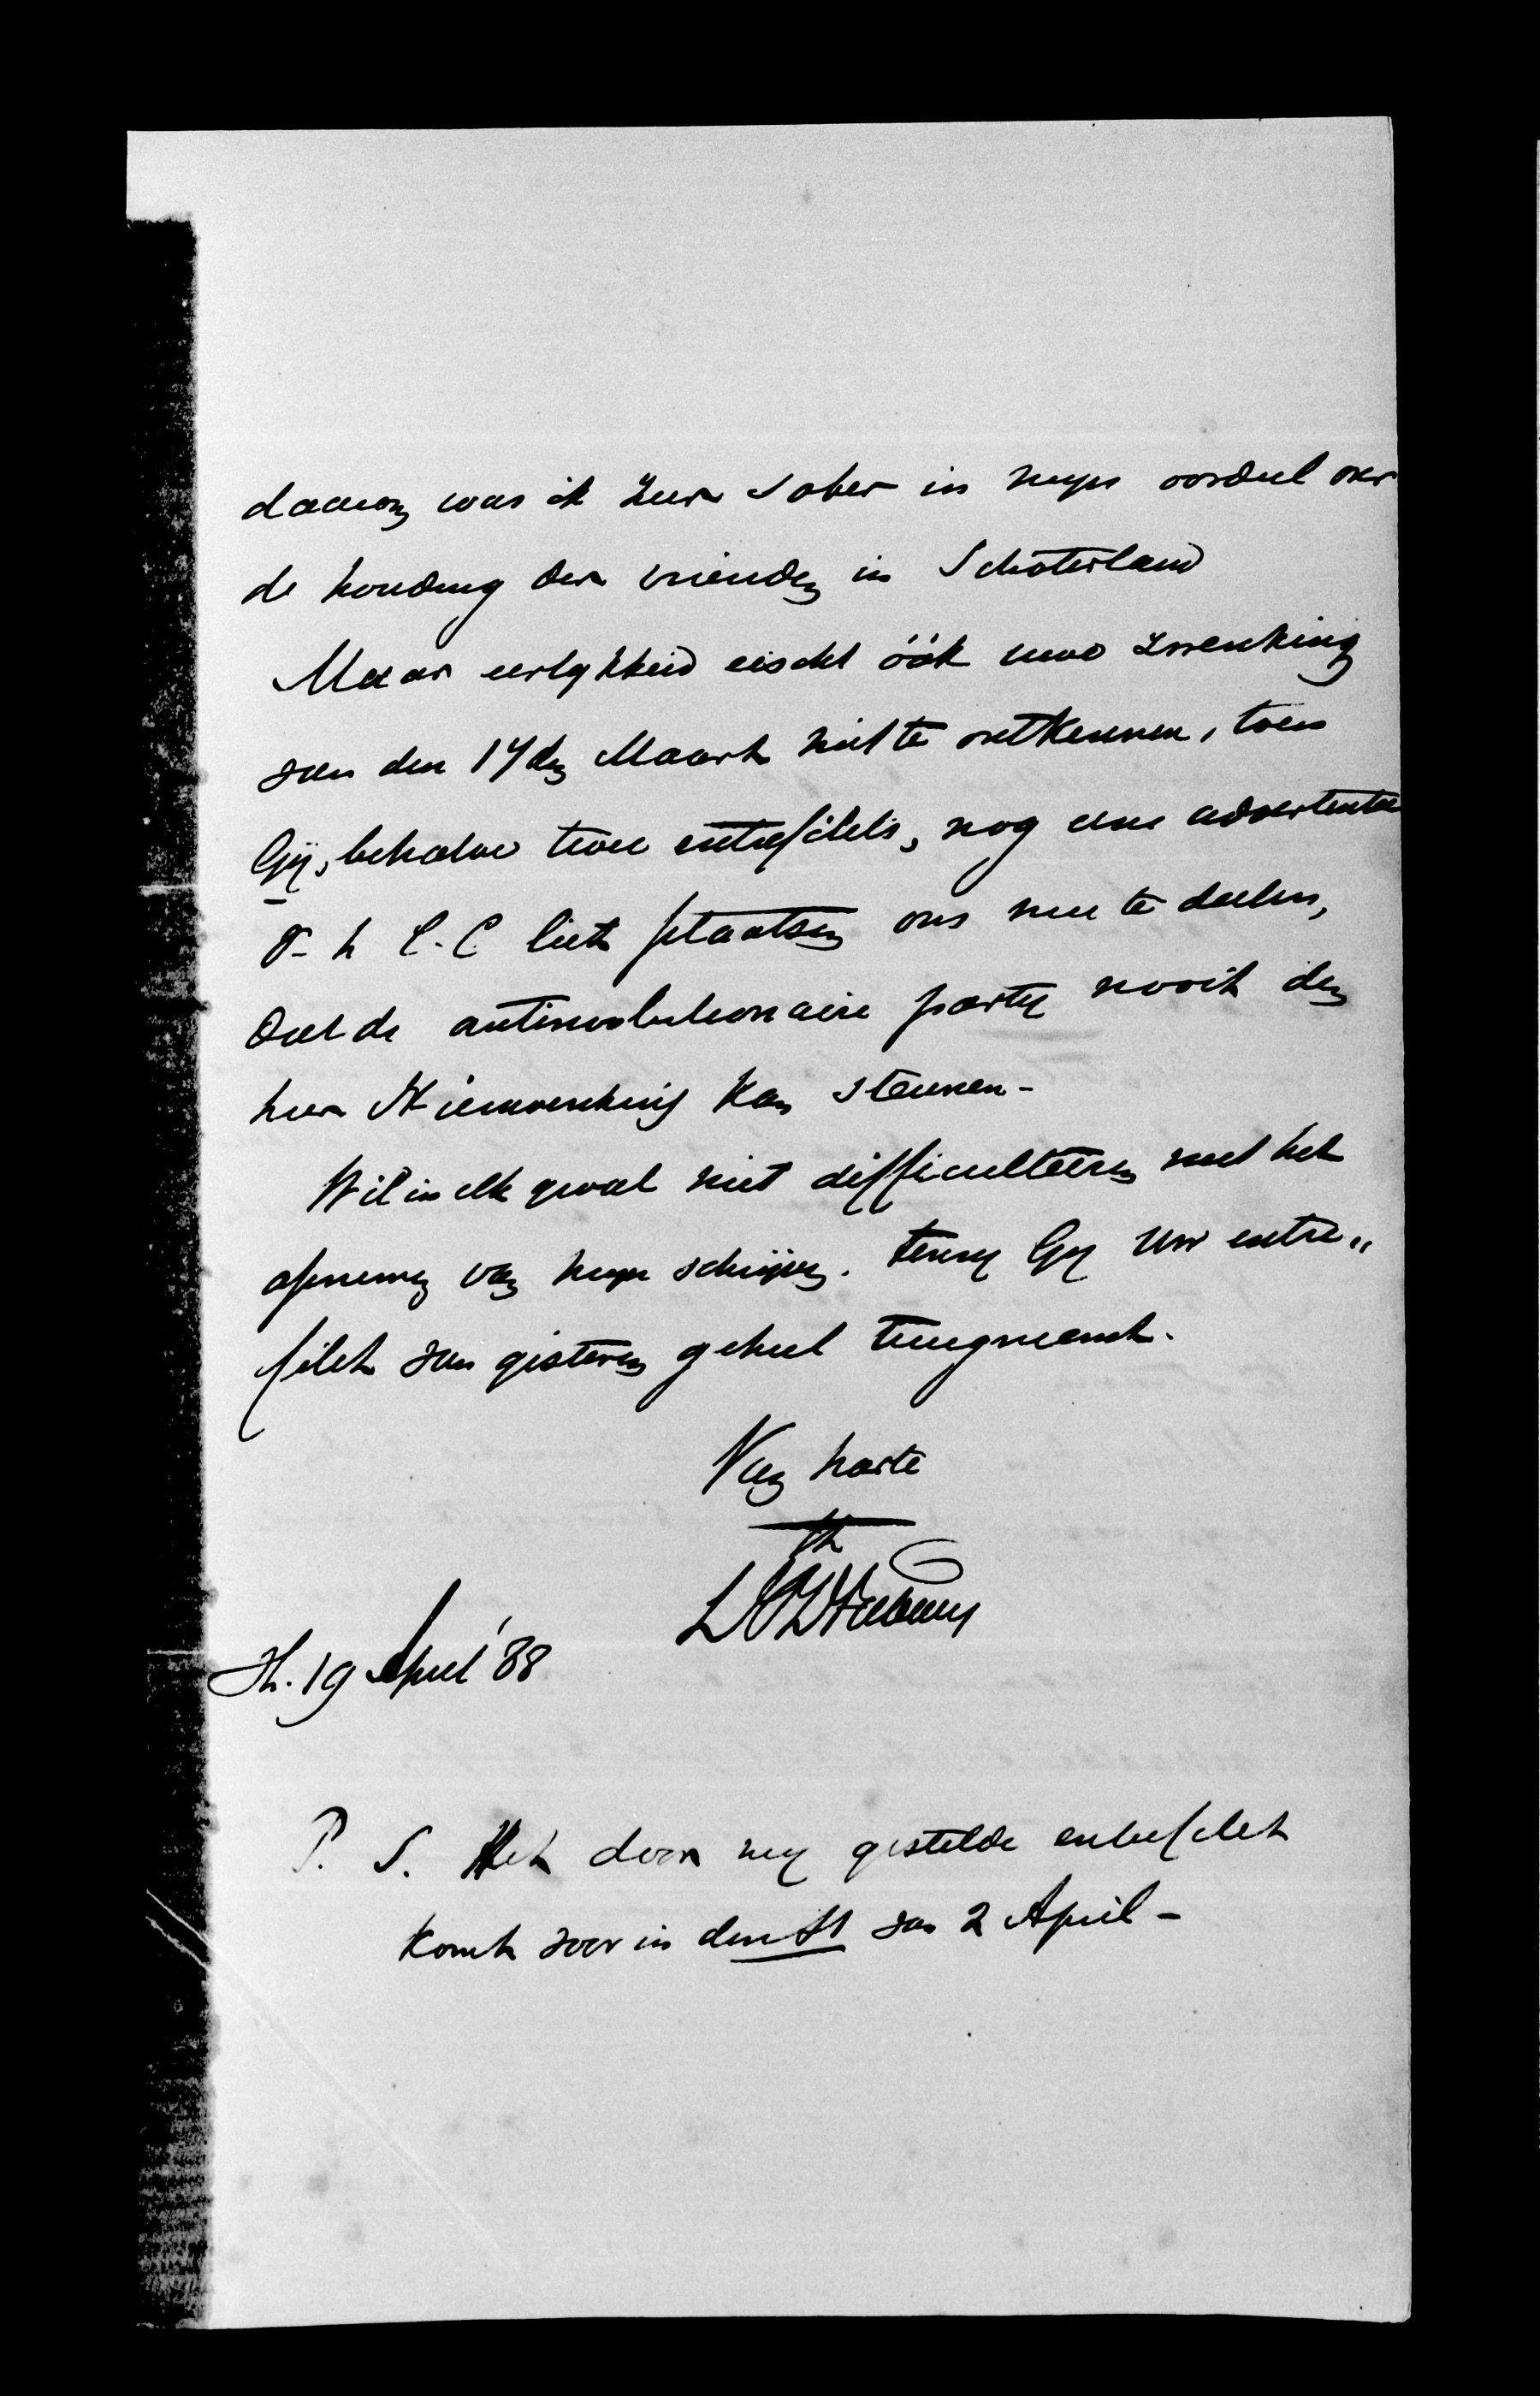 daarom was ik zeer sober in myn oordeel over
de houding der vrienden in Schoterland
Maar eerlykheid eischt óók uwe zwenking
van den 17den Maart niet te ontkennen, toen
Gij, behalve twee entrefilets, nog eene advertentie
v. h C. C liet plaatsen ons mee te deelen,
dat de antirevolutionaire party nooit den
heer Nieuwenhuis kan steunen -
Wil in elk geval niet difficulteeren met het
opnemen van myn schrijven. tenzy Gy Uw entre„
filet van gisteren geheel terugneemt.
Van harte
19 April '88
P. S. Het door my gestelde entrefilet
komt voor in den St van 2 April -